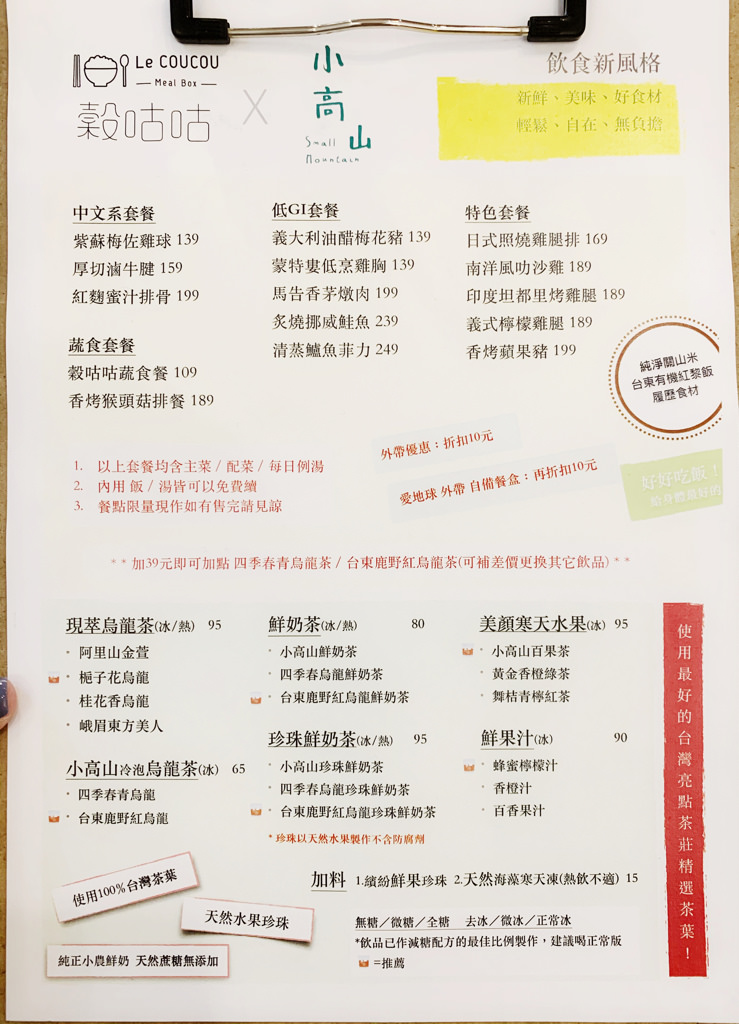 Le COUCOU
Meal Box
穀咕咕
X
小高山
Small Mountain
飲食新風格
新鮮、美味、好食材
輕鬆、自在、無負擔
中文系套餐
紫蘇梅佐雞球 139
厚切滷牛腱 159
紅麴蜜汁排骨 199
蔬食套餐
穀咕咕蔬食餐 109
香烤猴頭菇排餐 189
低GI套餐
義大利油醋梅花豬 139
蒙特婁低烹雞胸 139
馬告香茅燉肉 199
炙燒挪威鮭魚 239
清蒸鱸魚菲力 249
特色套餐
日式照燒雞腿排 169
南洋風叻沙雞 189
印度坦都里烤雞腿 189
義式檸檬雞腿 189
香烤蘋果豬 199
純淨關山米
台東有機紅藜飯
履歷食材
1. 以上套餐均含主菜 / 配菜 / 每日例湯
2. 內用 飯 / 湯皆可以免費續
3. 餐點限量現作如有售完請見諒
外帶優惠：折扣10元
愛地球 外帶 自備餐盒：再折扣10元
好好吃飯！
給身體最好的
**加39元即可加點 四季春青烏龍茶 / 台東鹿野紅烏龍茶(可補差價更換其它飲品)**
現萃烏龍茶(冰/熱) 95
阿里山金萱
梔子花烏龍
桂花香烏龍
峨眉東方美人
小高山冷泡烏龍茶(冰) 65
四季春青烏龍
台東鹿野紅烏龍
鮮奶茶(冰/熱) 80
小高山鮮奶茶
四季春烏龍鮮奶茶
台東鹿野紅烏龍鮮奶茶
珍珠鮮奶茶(冰/熱) 95
小高山珍珠鮮奶茶
四季春烏龍珍珠鮮奶茶
台東鹿野紅烏龍珍珠鮮奶茶
*珍珠以天然水果製作不含防腐劑
美顏寒天水果(冰) 95
小高山百果茶
黃金香橙綠茶
舞桔青檸紅茶
鮮果汁(冰) 90
蜂蜜檸檬汁
香橙汁
百香果汁
使用最好的台灣亮點茶莊精選茶葉！
加料 1.繽紛鮮果珍珠 2.天然海藻寒天凍(熱飲不適) 15
使用100%台灣茶葉
天然水果珍珠
純正小農鮮奶 天然蔗糖無添加
無糖／微糖／全糖 去冰／微冰／正常冰
*飲品已作減糖配方的最佳比例製作，建議喝正常版
=推薦